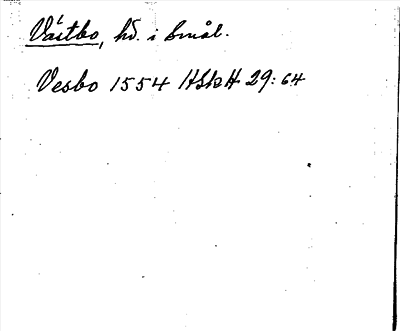 Västbo, hd. i Smål.
Vesbo 1554 HSkH 29:64